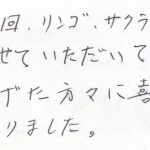 回、リンゴ、サクラ
せていただいて
げた方々に喜
りました。